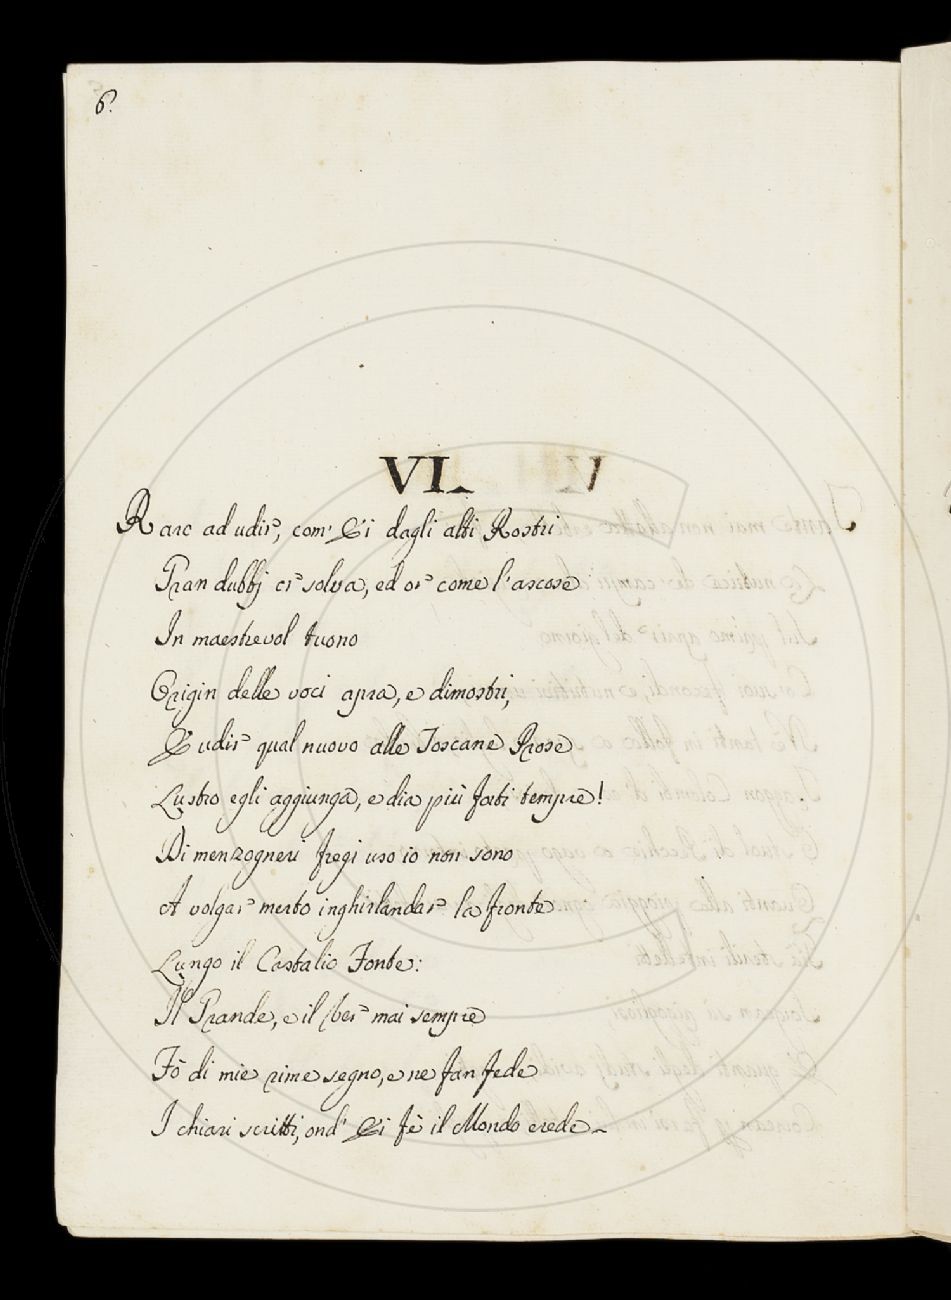 6.
VI.
Rare ad udir, com' Ei dagli alti Rostri
Gran dubbj ci solva, ed or come l'ascose
In maestrevol tuono
Origin delle voci apra, e dimostri,
E udir qual nuovo alle Toscane Prose
Lustro egli aggiunga, e dia più forti tempre!
Di menzogneri fregi uso io non sono
A volgar merto inghirlandar la fronte
Lungo il Castalio Fonte:
Il Grande, e il ver mai sempre
Fò di mie rime segno, e ne fan fede
I chiari scritti, ond' Ei fè il Mondo erede